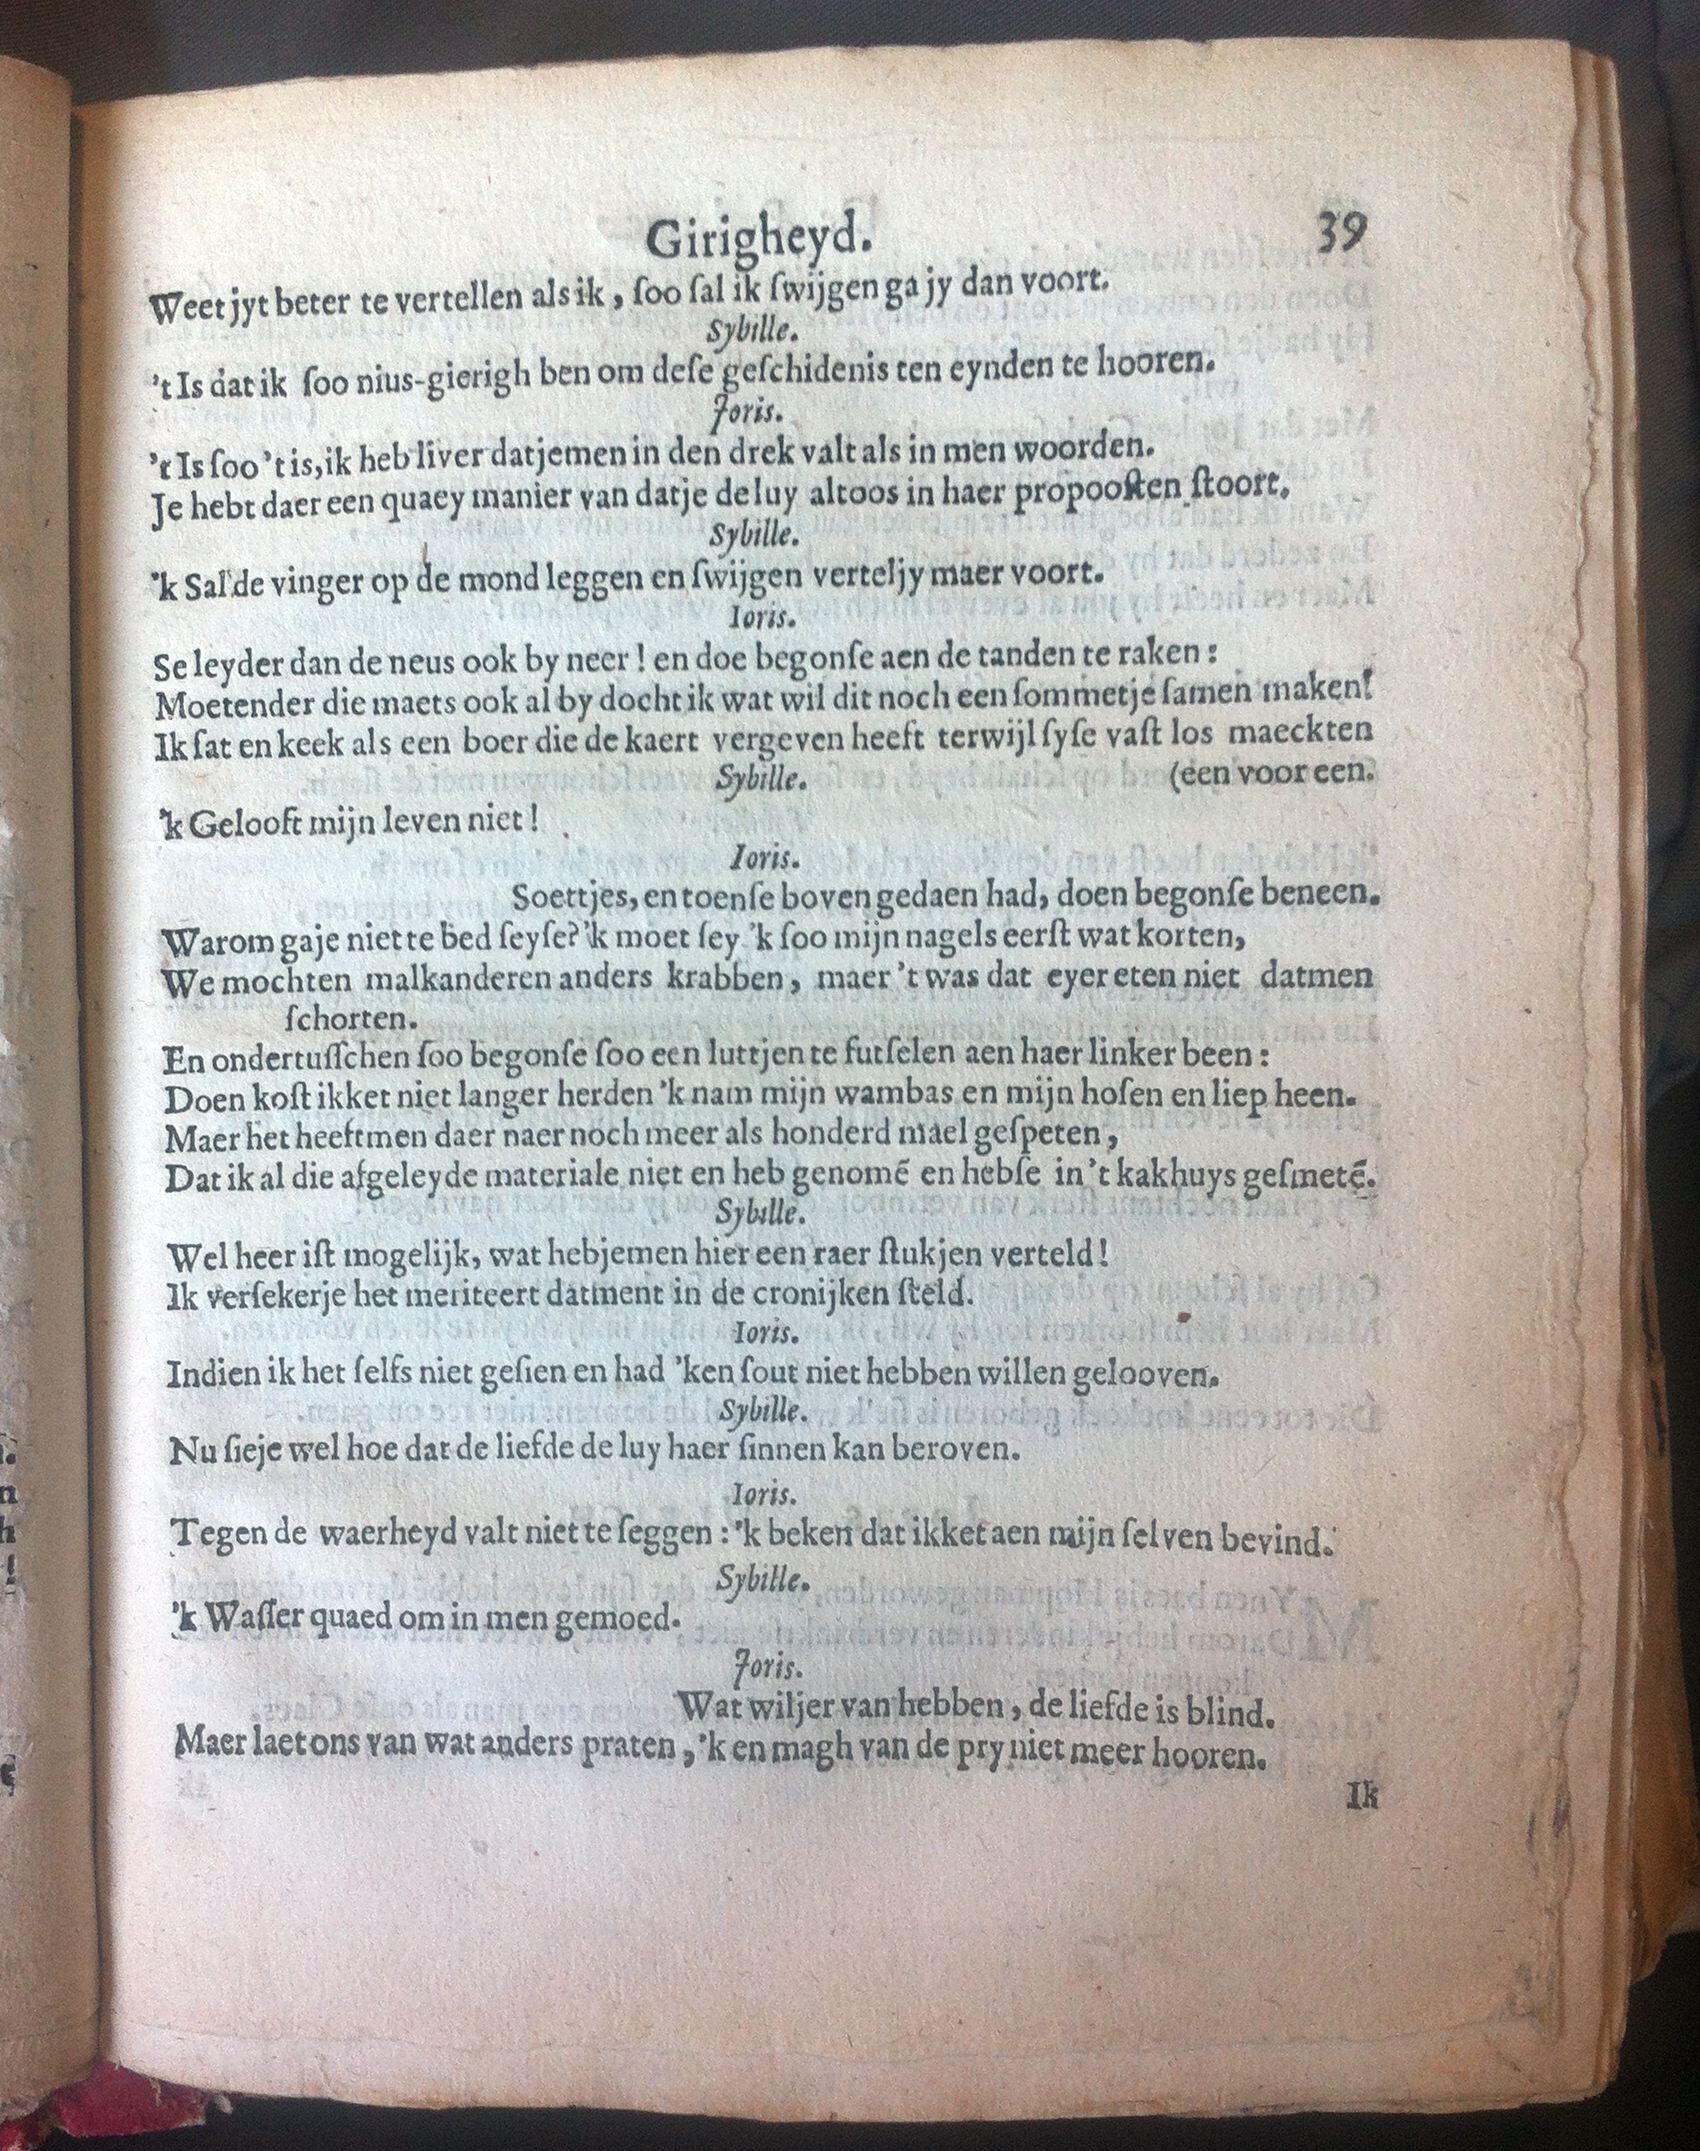 Girigheyd. 39
Weet jyt beter te vertellen als ik, ſoo ſal ik ſwijgen ga jy dan voort.
Sybille.
't Is dat ik ſoo nius-gierigh ben om deſe geſchidenis ten eynden te hooren.
Joris.
't Is ſoo 't is, ik heb liver datjemen in den drek valt als in men woorden.
Je hebt daer een quaey manier van datje de luy altoos in haer propooſten ſtoort.
Sybille.
'k Sal de vinger op de mond leggen en ſwijgen verteljy maer voort.
Ioris.
Se leyder dan de neus ook by neer! en doe begonſe aen de tanden te raken:
Moetender die maets ook al by docht ik wat wil dit noch een ſommetje ſamen maken!
Ik ſat en keek als een boer die de kaert vergeven heeft terwijl ſyſe vaſt los maeckten
Sybille. (een voor een.
'k Gelooft mijn leven niet!
Ioris.
Soettjes, en toenſe boven gedaen had, doen begonſe beneen.
Warom gaje niet te bed ſeyſe? 'k moet ſey 'k ſoo mijn nagels eerſt wat korten,
We mochten malkanderen anders krabben, maer 't was dat eyer eten niet datmen
ſchorten.
En ondertuſſchen ſoo begonſe ſoo een luttjen te futſelen aen haer linker been:
Doen koſt ikket niet langer herden 'k nam mijn wambas en mijn hoſen en liep heen.
Maer het heeftmen daer naer noch meer als honderd mael geſpeten,
Dat ik al die afgeleyde materiale niet en heb genomē en hebſe in 't kakhuys geſmetē.
Sybille.
Wel heer iſt mogelijk, wat hebjemen hier een raer ſtukjen verteld!
Ik verſekerje het meriteert datment in de cronijken ſteld.
Ioris.
Indien ik het ſelfs niet geſien en had 'ken ſout niet hebben willen gelooven.
Sybille.
Nu ſieje wel hoe dat de liefde de luy haer ſinnen kan beroven.
Ioris.
Tegen de waerheyd valt niet te ſeggen: 'k beken dat ikket aen mijn ſelven bevind.
Sybille.
'k Waſſer quaed om in men gemoed.
Joris.
Wat wiljer van hebben, de liefde is blind.
Maer laet ons van wat anders praten, 'k en magh van de pry niet meer hooren.
Ik